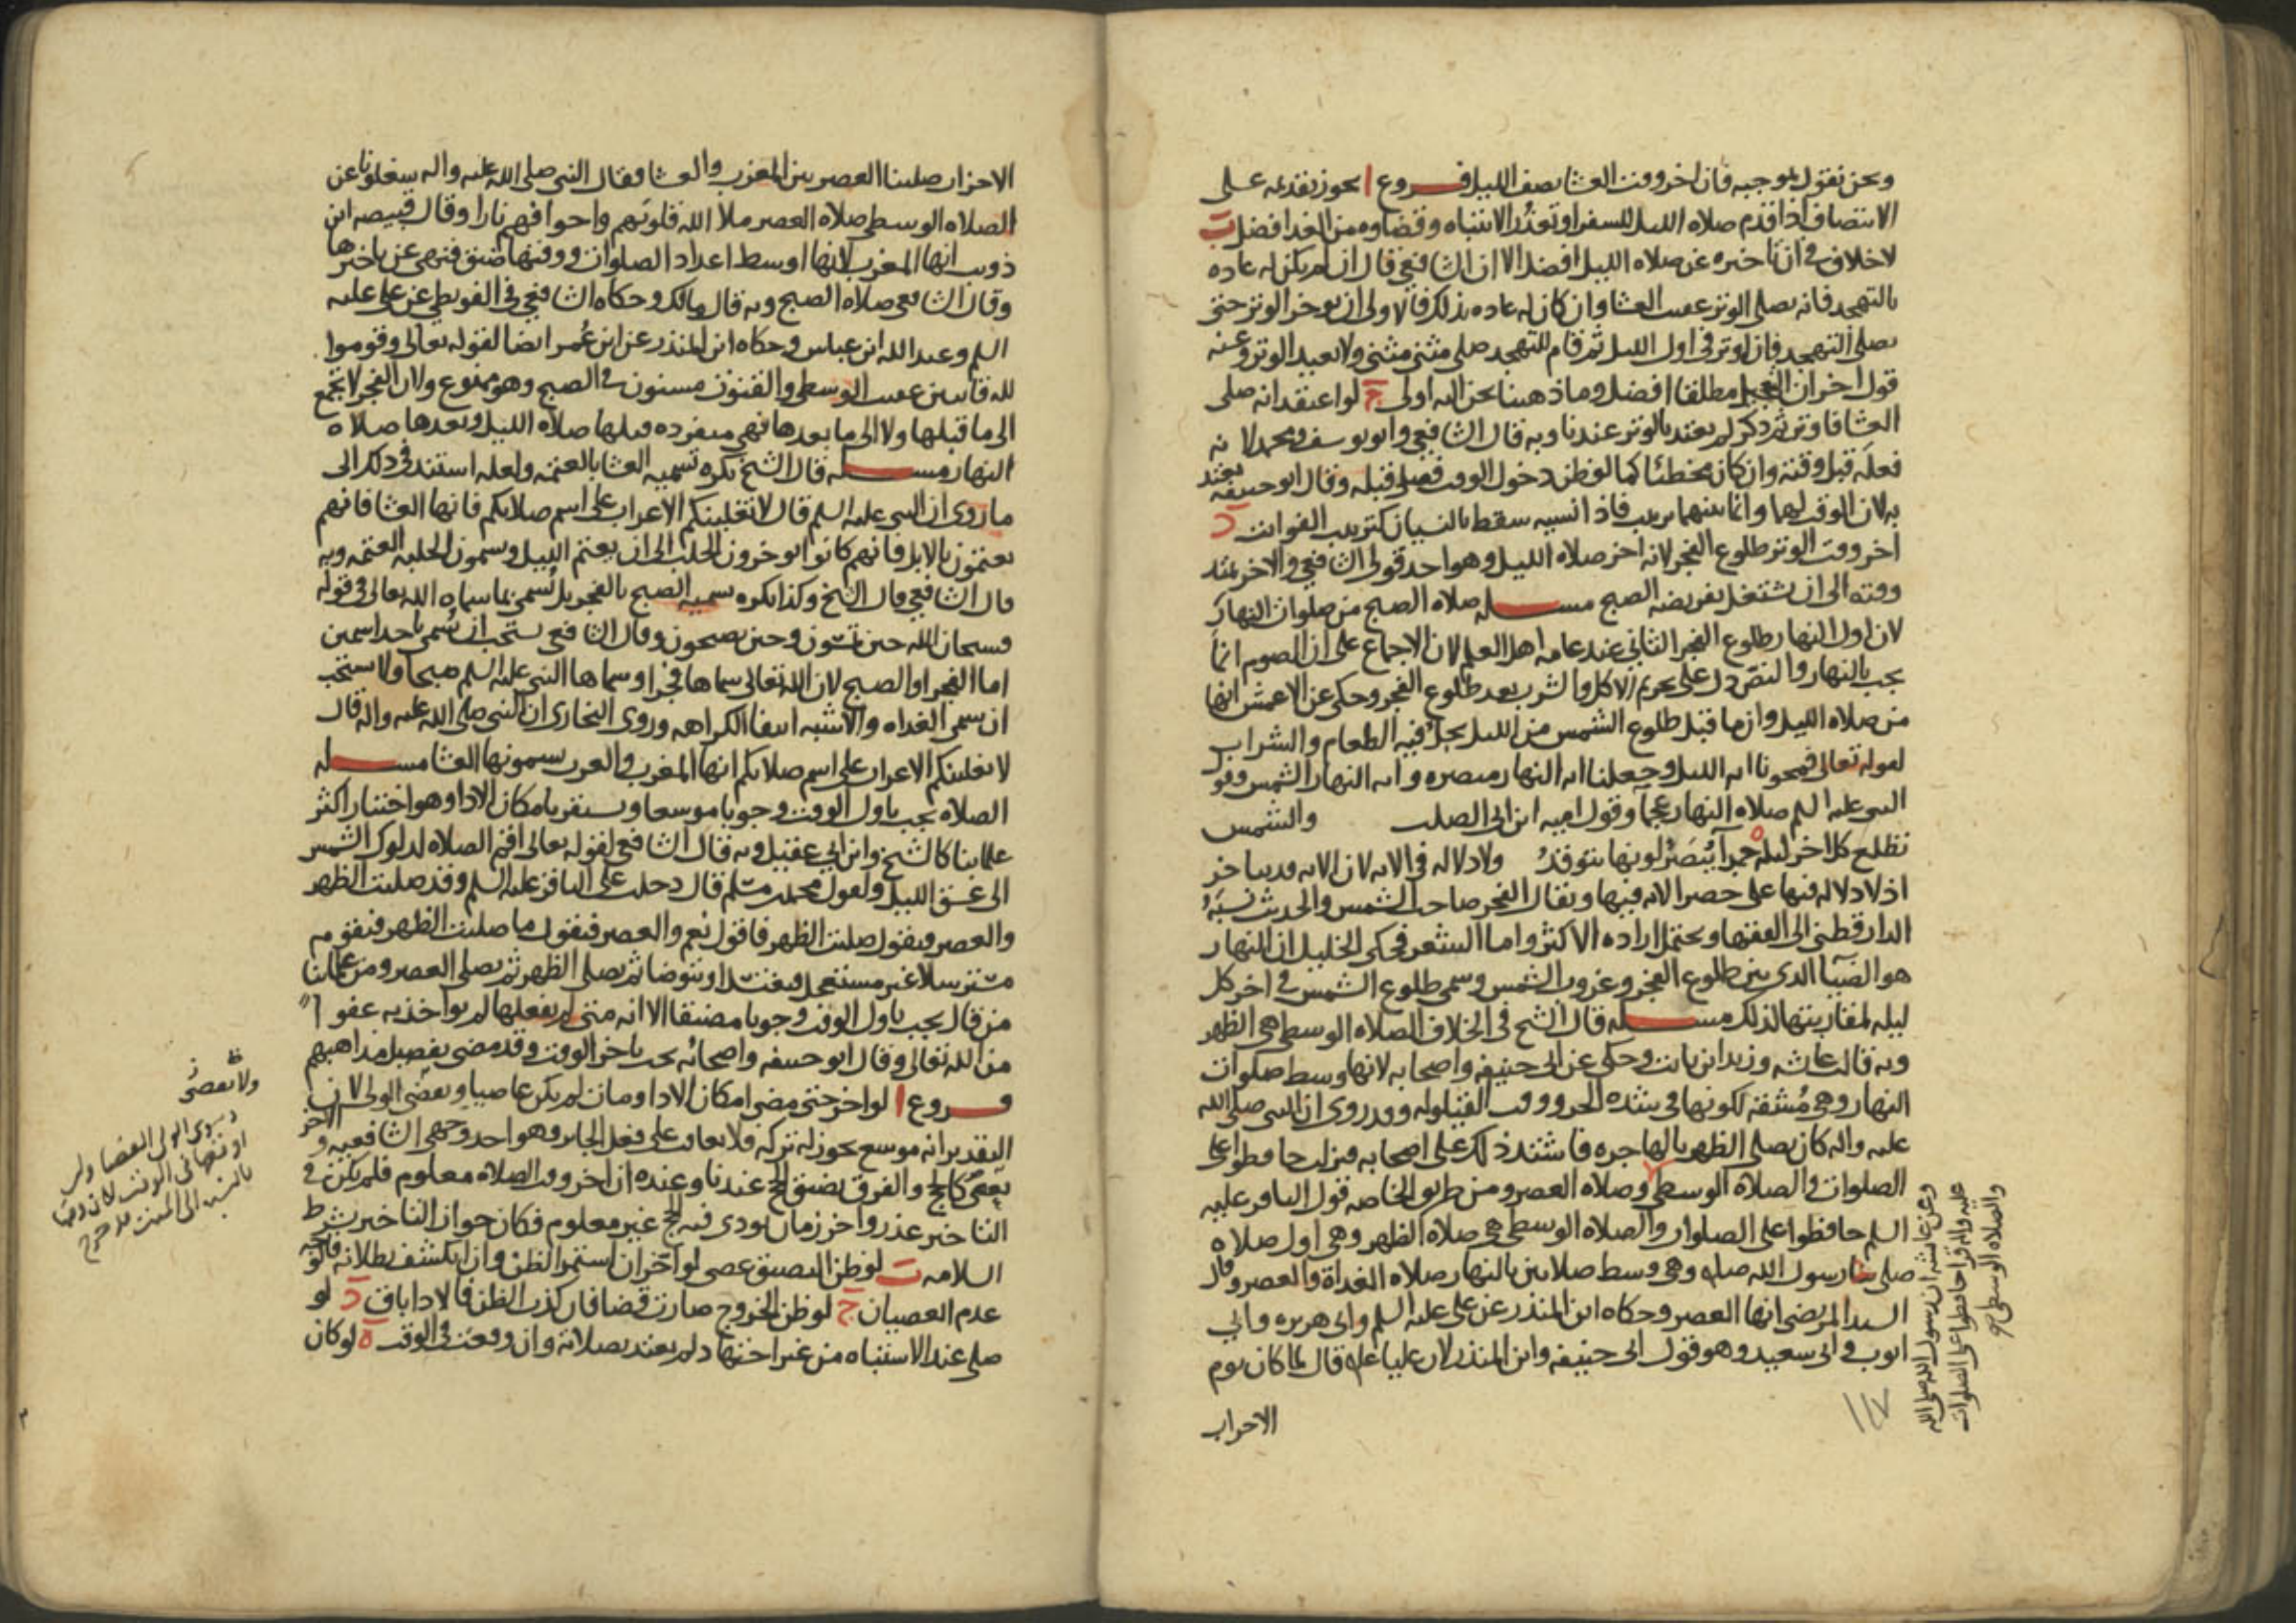 ونحن نقول بموجبه فان اخر وقت العشا نصف الليل فروع ا يجوز تقديمه على
الانتصاف اذا قدم صلاه الليل للسفر او تعذر الانتباه وقضاوه من الغد افضل ب
لا خلاف في ان تاخيره عن صلاه الليل افضل الا ان الشافعي قال ان لم يكن له عاده
بالتهجد فانه يصلى الوتر عقيب العشا وان كان له عاده بذلك فالاولى ان يوخر الوتر حتى
يصلى التهجد فان اوتر في اول الليل ثم قام للتهجد صلى مثنى مثنى ولا يعيد الوتر وعنه
قول اخر ان مطلقا افضل وما ذهبنا نحن اليه اولى ج لو اعتقد انه صلى
العشا فاوتر ثم ذكر لم يعتد بالوتر عندنا وبه قال الشافعي وابو يوسف ومحمد لانه
فعله قبل وقته وان كان مخطئا كما لو ظن دخول الوقت فصلى قبله وقال ابو حنيفه يعتد
به لان الوقت لهما وانما بينهما ترتيب فاذا نسيه سقط بالنسيان كترتيب الفوايت د
اخر وقت الوتر طلوع الفجر لانه اخر صلاه الليل وهو احد قولى الشافعي والاخر يمتد
وقته الى ان يشتغل بفريضه الصبح مسله صلاه الصبح من صلوات النهار
لان اول النهار طلوع الفجر الثاني عند عامه اهل العلم لان الاجماع على ان الصوم انما
يجب بالنهار والنص دل على تحريم الاكل والشرب بعد طلوع الفجر وحكى عن الاعمش انها
من صلاه الليل وان ما قبل طلوع الشمس من الليل يحل فيه الطعام والشراب
لقوله تعالى فمحونا ايه الليل وجعلنا ايه النهار مبصره وايه النهار الشمس وقو
النبى عليه السلم صلاه النهار عجما وقول اميه ابن ابى الصلت والشمس
تطلع كل اخر ليله حمرآ يبصر لونها يتوقد ولا دلاله في الايه لان الايه قد يتاخر
اذ لا دلاله فيها على حصر الايه فيها ويقال الفجر صاحب الشمس والحديث نسبه
الدارقطنى الى الفقها ويحتمل اراده الاكثر واما الشعر فحكى الخليل ان النهار
هو الضيآ الذى بين طلوع الفجر وغروب الشمس وسمى طلوع الشمس في اخر كل
ليله لمقارنتها لذلك مسله قال الشيخ في الخلاف الصلاه الوسطى هي الظهر
وبه قالت عايشه وزيد ابن ثابت وحكى عن ابى حنيفه واصحابه لانها وسط صلوات
النهار وهي مشقه لكونها في شده الحر ووقت القيلوله وقد روى ان النبى صلى الله
عليه واله كان يصلى الظهر بالهاجره فاشتد ذلك على اصحابه فنزلت حافظوا على
الصلوات والصلاه الوسطى وصلاه العصر ومن طريق الخاصه قول الباقر عليه
السلم حافظوا على الصلوات والصلاه الوسطى هي صلاه الظهر وهي اول صلاه
صلى رسول الله صله وهي وسط صلاتين بالنهار صلاه الغداة والعصر وقال
السيد المرتضى انها العصر وحكاه ابن المنذر عن على عليه السلم وابى هريره وابي
ايوب وابى سعيد وهو قول ابى حنيفه وابن المنذر لان عليا عله قال لما كان يوم
الاحزاب
وعن عايشه ان رسول الله صلى الله
عليه واله قرا حافظوا على الصلوات
والصلاه الوسطى
١١٧
الاحزاب صلينا العصر بين المغرب والعشا فقال النبى صلى الله عليه واله شغلونا عن
الصلاه الوسطى صلاه العصر ملا الله قلوبهم واجوافهم نارا وقال قبيصه ابن
ذويب انها المغرب لانها اوسط اعداد الصلوات ووقتها ضيق فنهى عن تاخيرها
وقال الشافعي صلاه الصبح وبه قال مالك وحكاه الشافعي في البويطى عن على عليه
السلم وعبد الله ابن عباس وحكاه ابن المنذر عن ابن عمر ايضا لقوله تعالى وقوموا
لله قانتين عقيب الوسطى والقنوت مسنون في الصبح وهو ممنوع ولان الفجر لا تجمع
الى ما قبلها ولا الى ما بعدها فهى منفرده قبلها صلاه الليل وبعدها صلاه
النهار مسله قال الشيخ تكره تسميه العشا بالعتمه ولعله استند في ذلك الى
ما روى ان النبى عليه السلم قال لا تغلبنكم الاعراب على اسم صلاتكم فانها العشا فانهم
يعتمون بالابل فانهم كانوا يوخرون الحلب الى ان يعتم الليل ويسمون الحلبه العتمه وبه
قال الشافعي قال الشيخ وكذا يكره تسميه الصبح بالفجر بل تسمى بما سماه الله تعالى في قوله
فسبحان الله حين تمسون وحين تصبحون وقال الشافعي يستحب ان تسمى باحد اسمين
اما الفجر او الصبح لان الله تعالى سماها فجرا وسماها النبى عليه السلم صبحا ولا يستحب
ان تسمى الغداه والاشبه انتفا الكراهه وروى البخارى ان النبى صلى الله عليه واله قال
لا تغلبنكم الاعراب على اسم صلاتكم انها المغرب والعرب يسمونها العشا مسله
الصلاه يجب باول الوقت وجوبا موسعا ويستقر بامكان الادا وهو اختيار اكثر
علماينا كالشيخ وابن ابى عقيل وبه قال الشافعي لقوله تعالى اقم الصلاه لدلوك الشمس
الى غسق الليل ولقول محمد بن مسلم قال دخلت على الباقر عليه السلم وقد صليت الظهر
والعصر فيقول صليت الظهر فاقول نعم والعصر فيقول ما صليت الظهر فيقوم
مترسلا غير مستعجل فيغتسل او يتوضا ثم يصلى الظهر ثم يصلى العصر ومن علماينا
من قال يجب باول الوقت وجوبا مضيقا الا انه متى لم يفعلها لم يواخذ به عفوا
من الله تعالى وقال ابو حنيفه واصحابه يجب باخر الوقت وقد مضى تفصيل مذاهبهم
فروع ا لو اخر حتى مضى امكان الادا ومات لم يكن عاصيا ويقضى الولى لان
التقدير انه موسع يجوز له تركه فلا يعاقب على فعل الجايز وهو احد وجهى الشافعيه والاخر
يعصى كالحج والفرق تضيق الحج عندنا وعنده ان اخر وقت الصلاه معلوم فلم يكن في
التاخير عذر واخر زمان يودى فيه الحج غير معلوم فكان جواز التاخير بشرط
السلامه ب لو ظن التضيق عصى لو اخر ان استمر الظن وان انكشف بطلانه فالوجه
عدم العصيان ج لو ظن الخروج صارت قضا فان كذب الظن فالادا باق د لو
صلى عند الاشتباه من غير اجتهاد لم يعتد بصلاته وان وقعت في الوقت ه لو كان
ولا يقضى